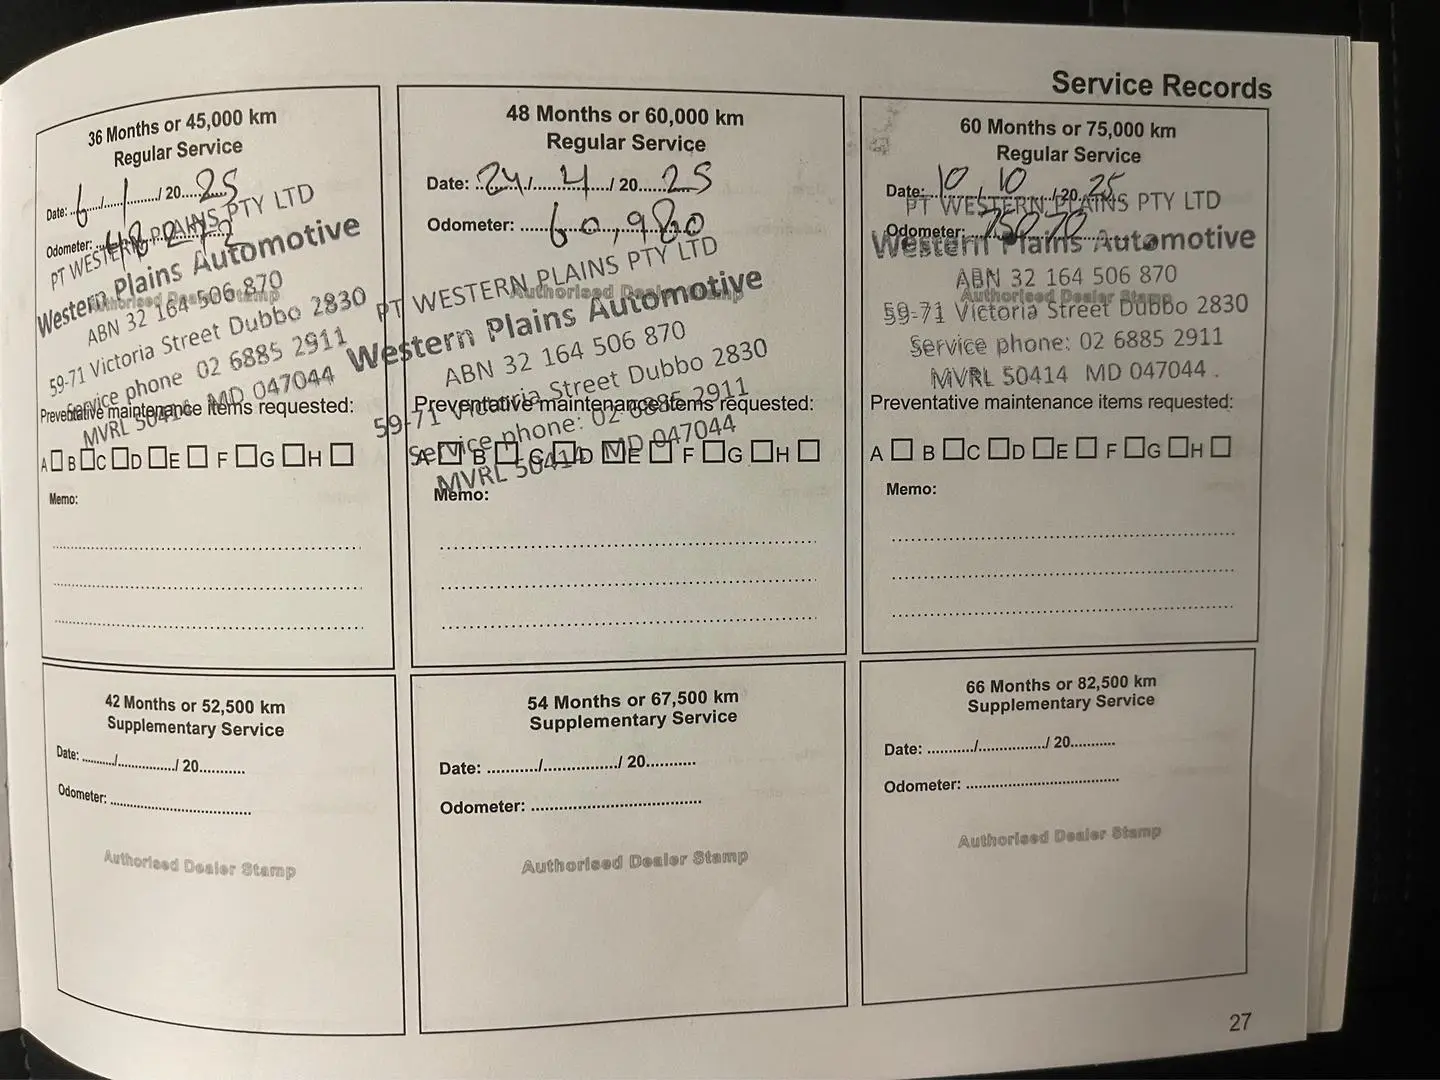 Service Records
36 Months or 45,000 km
Regular Service
Date: 6 / 1 / 20 25
Odometer:
PT WESTERN PLAINS PTY LTD
Western Plains Automotive
Authorised Dealer Stamp
ABN 32 164 506 870
59-71 Victoria Street Dubbo 2830
Service phone 02 6885 2911
MVRL 50414 MD 047044
Preventative maintenance items requested:
A B C D E F G H
Memo:
48 Months or 60,000 km
Regular Service
Date: 24 / 4 / 20 25
Odometer: 60,980
PT WESTERN PLAINS PTY LTD
Authorised Dealer Stamp
Western Plains Automotive
ABN 32 164 506 870
59-71 Victoria Street Dubbo 2830
Preventative maintenance items requested:
Service phone: 02 6885 2911
A B C D E F G H
MVRL 50414 MD 047044
Memo:
60 Months or 75,000 km
Regular Service
Date: 10 / 10 / 20 25
PT WESTERN PLAINS PTY LTD
Odometer: 75070
Western Plains Automotive
ABN 32 164 506 870
Authorised Dealer Stamp
59-71 Victoria Street Dubbo 2830
Service phone: 02 6885 2911
MVRL 50414 MD 047044 .
Preventative maintenance items requested:
A B C D E F G H
Memo:
42 Months or 52,500 km
Supplementary Service
Date: ........../................/ 20...........
Odometer: ....................................
Authorised Dealer Stamp
54 Months or 67,500 km
Supplementary Service
Date: .........../................/ 20...........
Odometer: .......................................
Authorised Dealer Stamp
66 Months or 82,500 km
Supplementary Service
Date: .........../................/ 20...........
Odometer: .......................................
Authorised Dealer Stamp
27